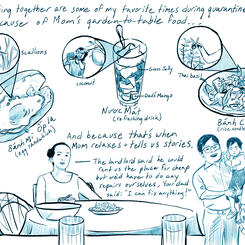 ing together are some of my favorite times during quarantine
cause of Mom's garden-to-table food...
scallions
coconut
Grass Jelly
Dried Mango
Thai basil
Bánh Mì Ốp la
(egg sandwich)
Nước Mát
(refreshing drink)
Bánh C
(rice
And because that's when
Mom relaxes + tells us stories.
The landlord said he could
rent us the place for cheap
but we'd have to do any
repairs ourselves. Your dad
said: "I can fix anything!"